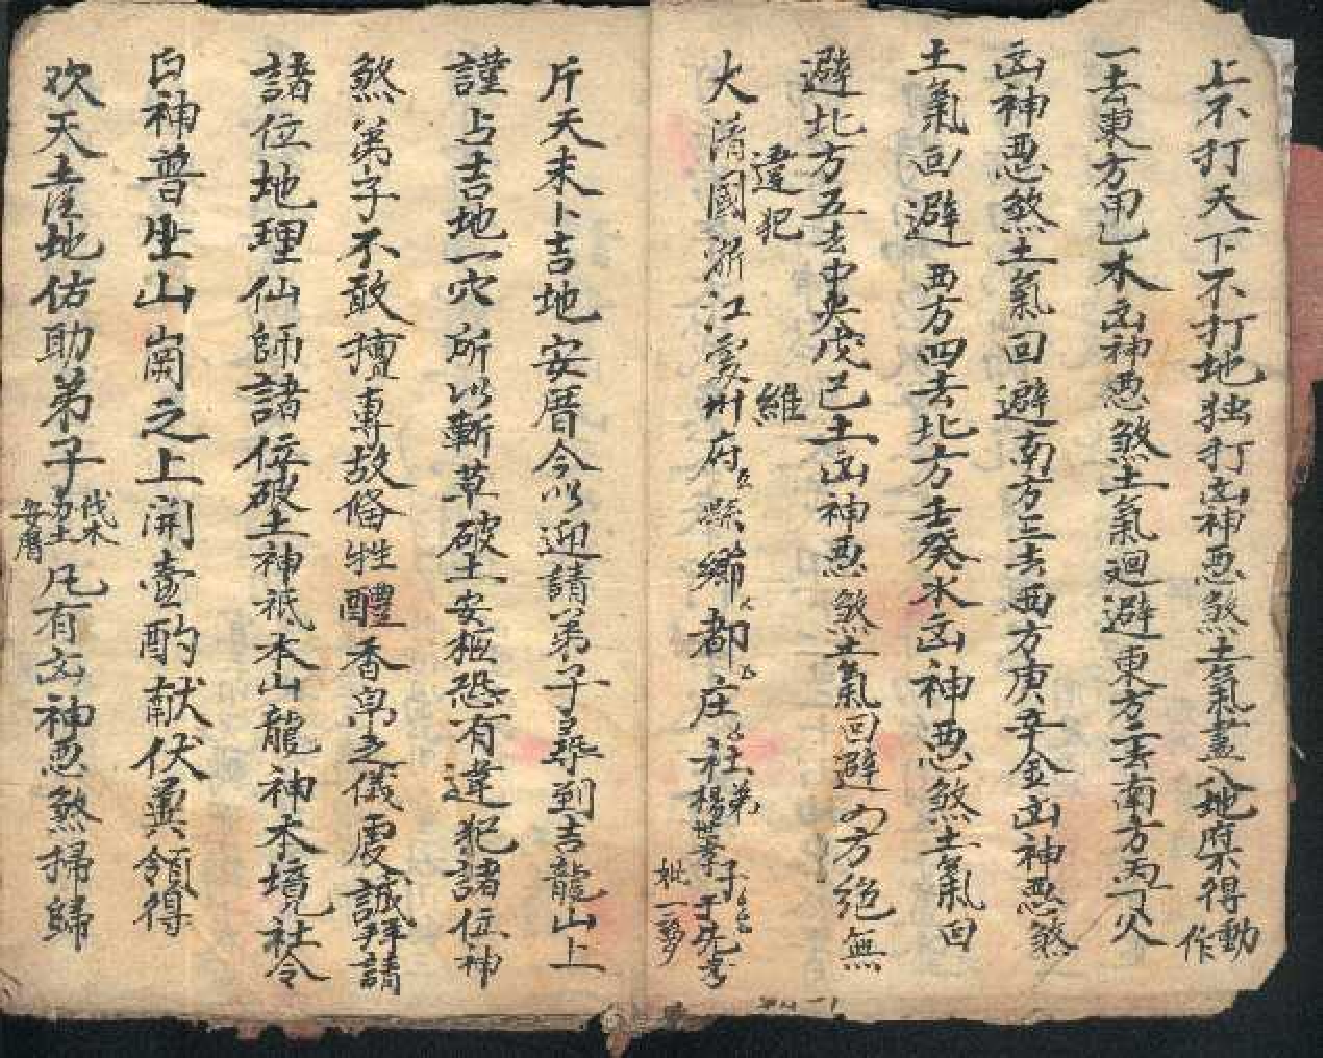 上不打天下不打地独打凶神恶煞土氣盡入地府不得動作
一去東方甲乙木凶神恶煞土氣迴避東方二去南方丙丁火
凶神恶煞土氣回避南方三去西方庚辛金凶神恶煞
土氣回避西方四去北方壬癸水凶神恶煞土氣回
避北方五去中央戊己土凶神恶煞土氣回避四方絶無
違犯 維
大清國浙江處州府縣鄉都庄社弟子楊于先考
妣一
斤天未卜吉地安厝今以迎請弟子尋到吉龍山上
謹占吉地一穴所以斬草破土安柩恐有違犯諸位神
煞弟子不敢擅專故偹牲醴香帛之儀虔誠拜請
諸位地理仙師諸位破土神祗本山龍神本境社令
白神普坐山崗之上開壺酌献伏兾領得
次天土地佑助弟子伐木安厝凡有凶神恶煞掃歸